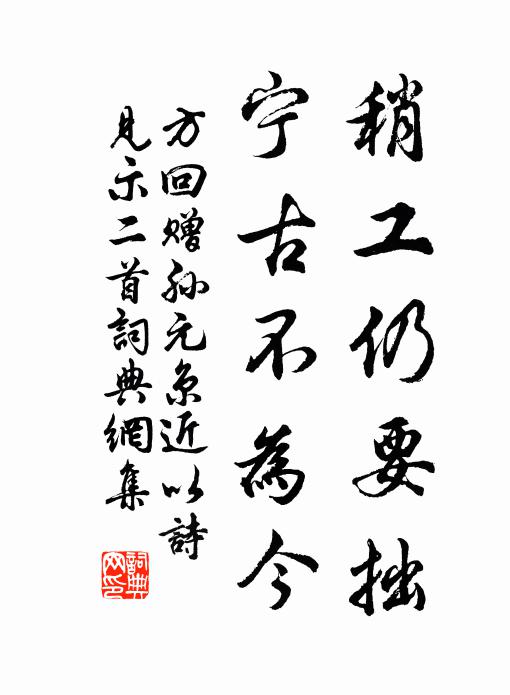 稍工仍要拙
宁古不為今
方回赠孙元京近以詩
見示二首詞典網集
詞典网印